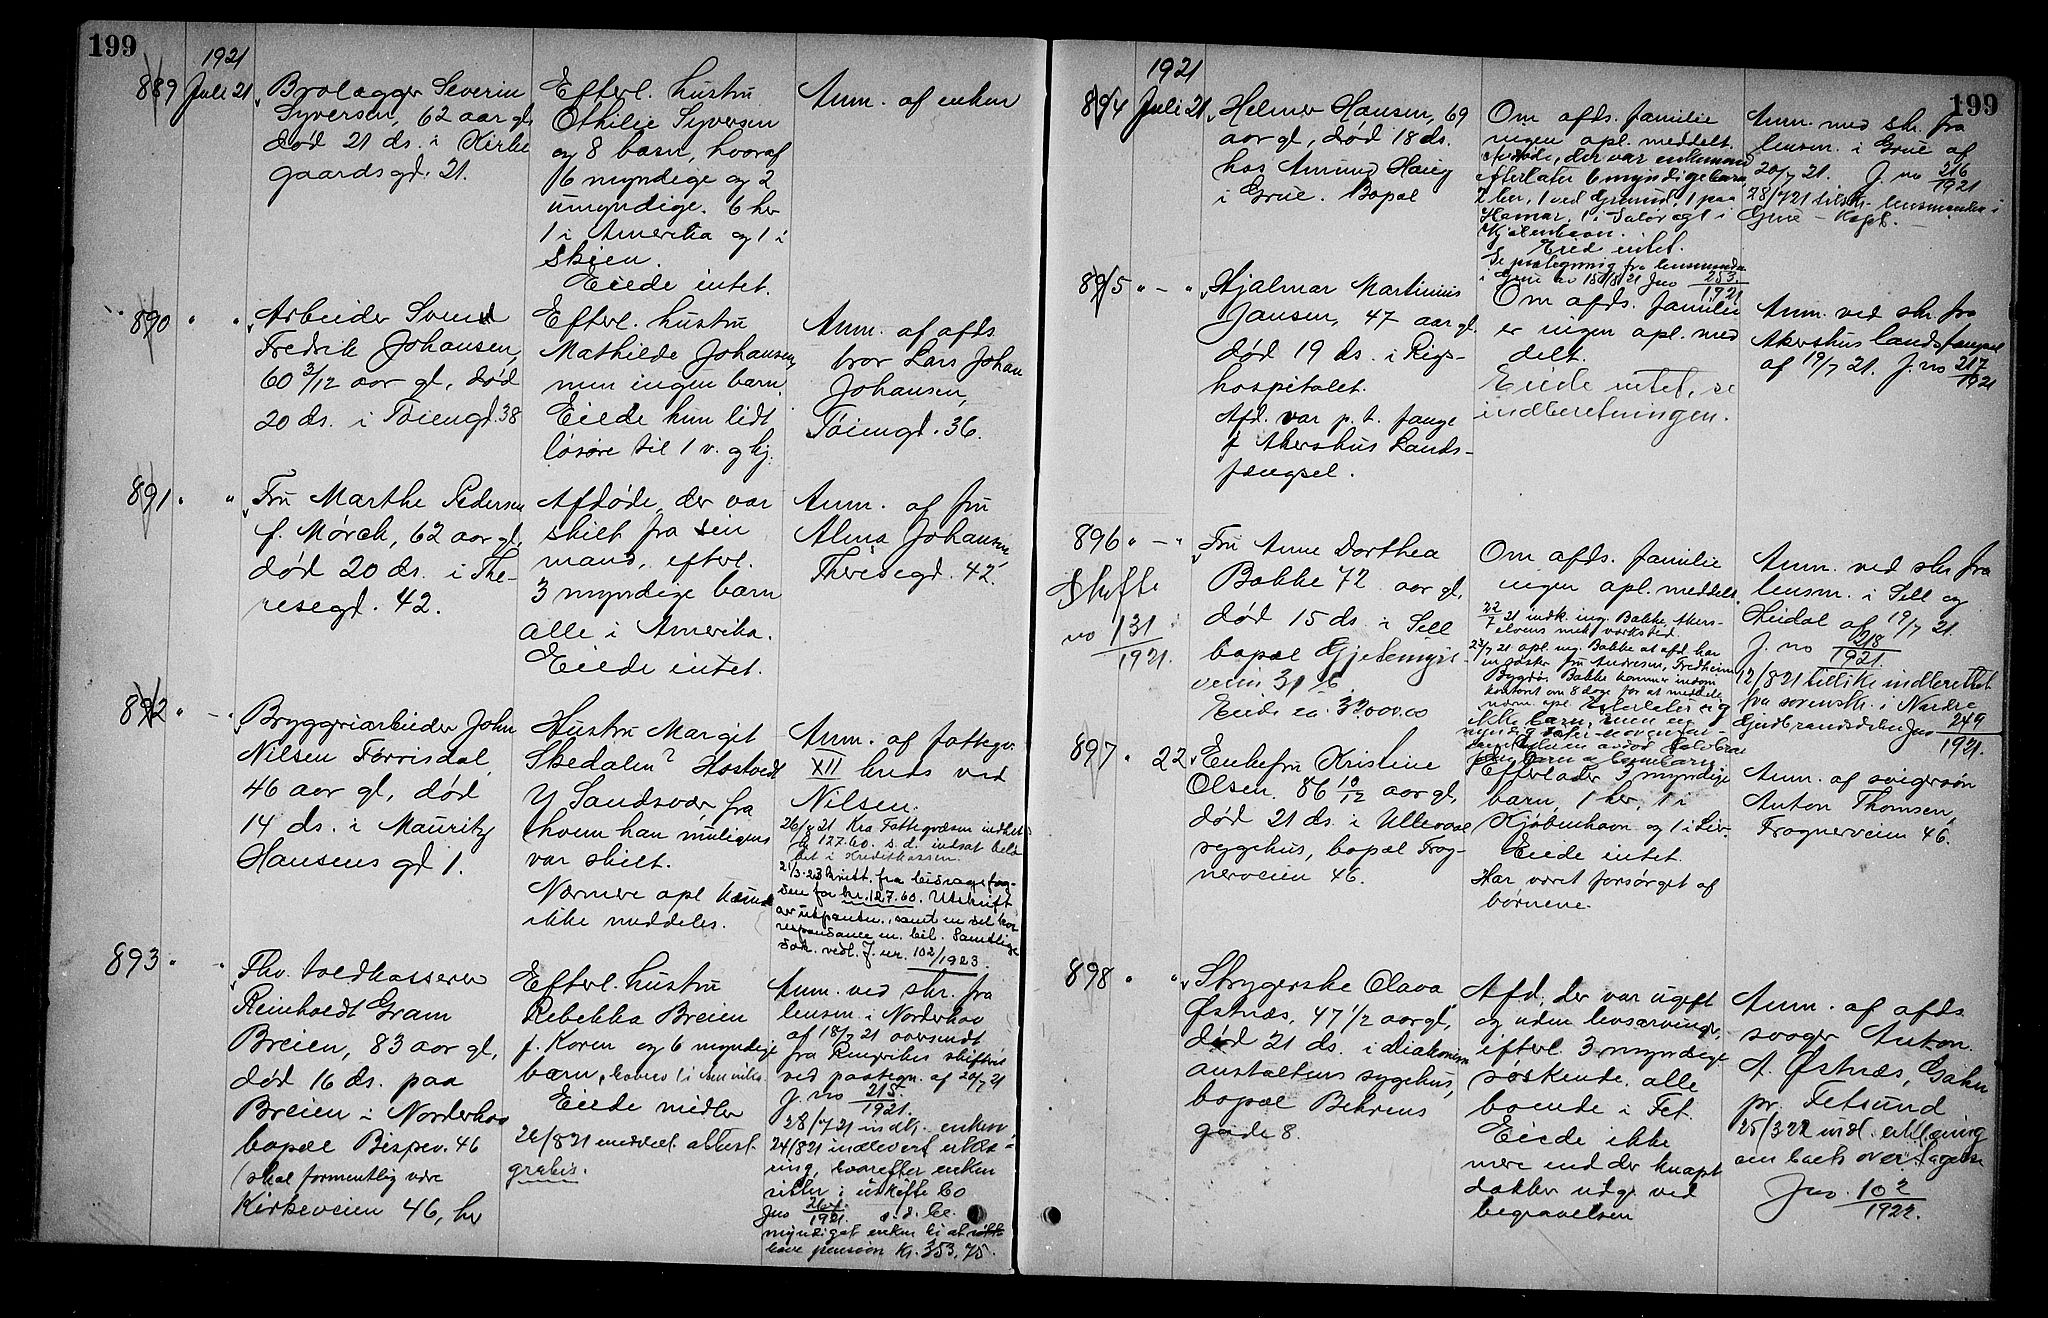 199
1921
889 Juli 21
Brolægger Severin
Syversen, 62 aar gl.
død 21 ds. i Kirke
gaardsgd. 21.
Efterl. hustru
Othilie Syversen
og 8 barn, hvoraf
6 myndige og 2
umyndige. 6 her
1 i Amerika og 1 i
Skien.
Eiede intet.
Anm. af enken
890 " "
Arbeider Svend
Fredrik Johansen,
60 3/12 aar gl, død
20 ds. i Tøiengd. 38
Efterl. hustru
Mathilde Johansen,
men ingen barn
Eiede kun lidt
løsøre til 1 v. og kj.
Anm. af afds
bror Lars Johan
Johansen,
Tøiengd. 36.
891 " "
Fru Marthe Pedersen
f. Mørch, 62 aar gl,
død 20 ds. i The-
resegd. 42.
Afdøde, der var
skilt fra sin
mand, efterl.
3 myndige barn
alle i Amerika.
Eiede intet.
Anm. af fru
Alma Johansen
Theresegd. 42.
892 " - "
Bryggeriarbeider John
Nilsen Førrisdal,
46 aar gl, død
14 ds. i Mauritz
Hansens gd 1.
Hustru Margit
Skedalen? Hostvedt
Sandsvær, fra
hvem han muligens
var skilt.
Nærmere opl kunde
ikke meddeles.
Anm. af fattigv.
XII kreds ved
Nilsen.
26/8 21 Kra Fattigvæsen indbet
kr 127.60. s. d. indsat
i Kreditkassen.
21/3-23 kvitt. fra bidragsfog-
den for kr. 127.60. Utskrift
av utpantn., samt en del kor
respondance en. bil. Samtlige
dok. vedl. J. nr. 102/1923.
893 " - "
Fhv. toldkasserer
Reinholdt Gram
Breien, 83 aar gl,
død 16 ds. paa
Breien i Norderhov
bopæl Bispev. 46
(skal formentlig være
Kirkeveien 46, her
Efterl. hustru
Rebekka Breien
f. Koren og 6 myndige
barn, hvorav 1 i Amerika.
Eiede midler
24/8 21 meddelt attest
gratis.
Anm. ved skr. fra
lensm. i Norderhov
af 18/7 21 oversendt
fra Ringerikes skifteret
ved paategn. af 20/7 21
J. no 215/1921.
28/7 21 indk. enken
24/8 21 indlevert erklæ-
ring, hvorefter enken
sitter i uskifte bo
Jno 264/1921. s. d. be-
myndiget enken til at
have pension kr. 353,75.
199
1921
894 Juli 21
Helmer Hansen, 69
aar gl, død 18 ds.
hos Amund Haug
i Grue. Bopæl
Om afds. familie
ingen opl. meddelt.
Avdøde, der var enkemand
efterlater 6 myndige barn,
2 her, 1 ved Grmund, 1 paa
Hamar, 1 i Solør og 1 i
Kjøbenhavn.
Eied intet.
Se paategning fra lensmanden
i Grue av 18/8 21 Jno 253/1921
Anm. med skr. fra
lensm. i Grue af
20/7 21. J. no 216/1921
28/7 21 tilskr. lensmanden i
Grue - Kopi. -
895 " - "
Hjalmar Martinius
Jansen, 47 aar gl.
død 19 ds. i Rigs-
hospitalet.
Afd. var p. t. fange
i Akershus Lands-
fængsel.
Om afds. familie
er ingen opl. med
delt.
Eiede intet, se
indberetningen.
Anm. ved skr. fra
Akershus landsfængsel
af 19/7 21. J. no 217/1921
896 " - "
Skifte
no 131/1921.
Fru Anne Dorthea
Bakke 72 aar gl,
død 15 ds. i Sell
bopæl Gjetemyrs-
veien 31
Eiede ca. 33000.00
Om afds. familie
ingen opl. meddelt.
22/7 21 indk. ing. Bakke, Akers-
elvens mek værksted.
23/7 21 opl. ing. Bakke at afd. har
en søster fru Andresen, Fredheim
Bygdø. Bakke kommer indom
kontoret om 8 dage for at meddele
nærm. opl. Efterlater sig
ikke barn, men en
myndig
Anm. ved skr. fra
lensm. i Sell og
Heidal af 19/7 21.
J. no 218/1921.
12/8 21 tilskr. indberettet
fra sorenskr. i Nordre
Gudbrandsdalen Jno 249/1921.
897 " 22
Enkefru Kristine
Olsen. 86 10/12 aar gl,
død 21 ds. i Ullevaal
sygehus, bopæl Frog-
nerveien 46.
Efterlader 3 myndige
barn, 1 her, 1 i
Kjøbenhavn og 1 i Liv-
Eiede intet.
Har været forsørget af
børnene.
Anm. af svigersøn
Anton Thomsen,
Frognerveien 46.
898 " "
Strygerske Olava
Østnæs, 47 1/2 aar gl,
død 21 ds. i diakonisse
anstaltens sygehus,
bopæl Behrens
gade 8.
Afd. der var ugift
og uden livsarvinger,
efterl. 3 myndige
søskende, alle
boende i Fet.
Eiede ikke
mere end der knapt
dækker udg. ved
begravelsen
Anm. af afds.
svoger Anton
A. Østnæs, Gahn
pr. Fetsund
25/3 22 indl. erklæring
om boets overtagelse
Jno. 102/1922.